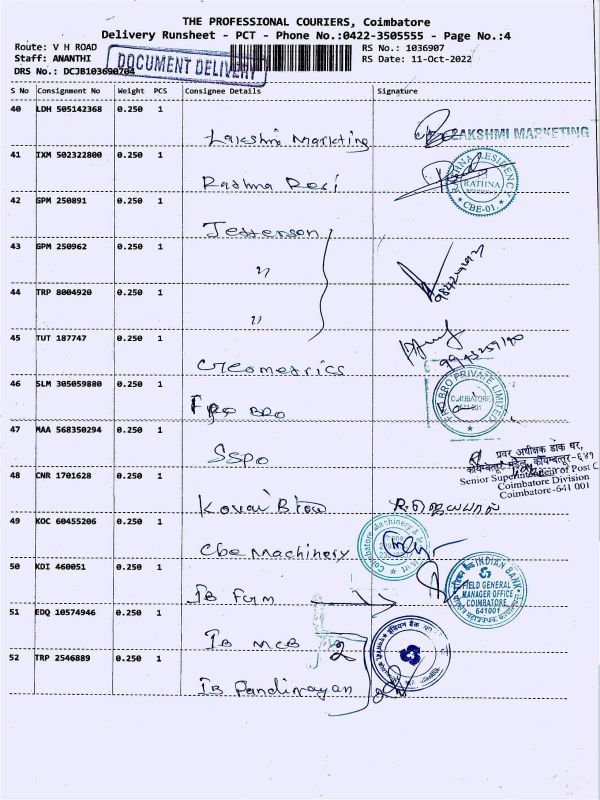 THE PROFESSIONAL COURIERS, Coimbatore
Delivery Runsheet - PCT - Phone No.:0422-3505555 - Page No.:4
Route: V H ROAD
RS No.: 1036907
Staff: ANANTHI
RS Date: 11-Oct-2022
DRS No.: DCJB103690704
DOCUMENT DELIVERY
S No Consignment No Weight PCS Consignee Details Signature
40 LDH 505142368 0.250 1
Lakshmi Markting LAKSHMI MARKETING
41 IXM 502322800 0.250 1
RATHNA RESIDENCY
RATHNA
CBE-01
42 GPM 250891 0.250 1
Jefferson
43 GPM 250962 0.250 1
"
44 TRP 8004920 0.250 1
"
45 TUT 187747 0.250 1
Creometrics
46 SLM 305059880 0.250 1
BRO BRO PRIVATE LIMITED
COIMBATORE
641 001
47 MAA 568350294 0.250 1
SSPO
प्रवर अधीक्षक डाक घर,
Senior Superintendent of Post
Coimbatore Division
Coimbatore-641 001
48 CNR 1701628 0.250 1
Kovai
49 KOC 60455206 0.250 1
Cbe Machinery Coimbatore Machinery &
50 KDI 460051 0.250 1
IB Fgm
INDIAN BANK
FIELD GENERAL
MANAGER OFFICE
COIMBATORE
641001
51 EDQ 10574946 0.250 1
IB MCB 2
इंडियन बैंक
52 TRP 2546889 0.250 1
IB